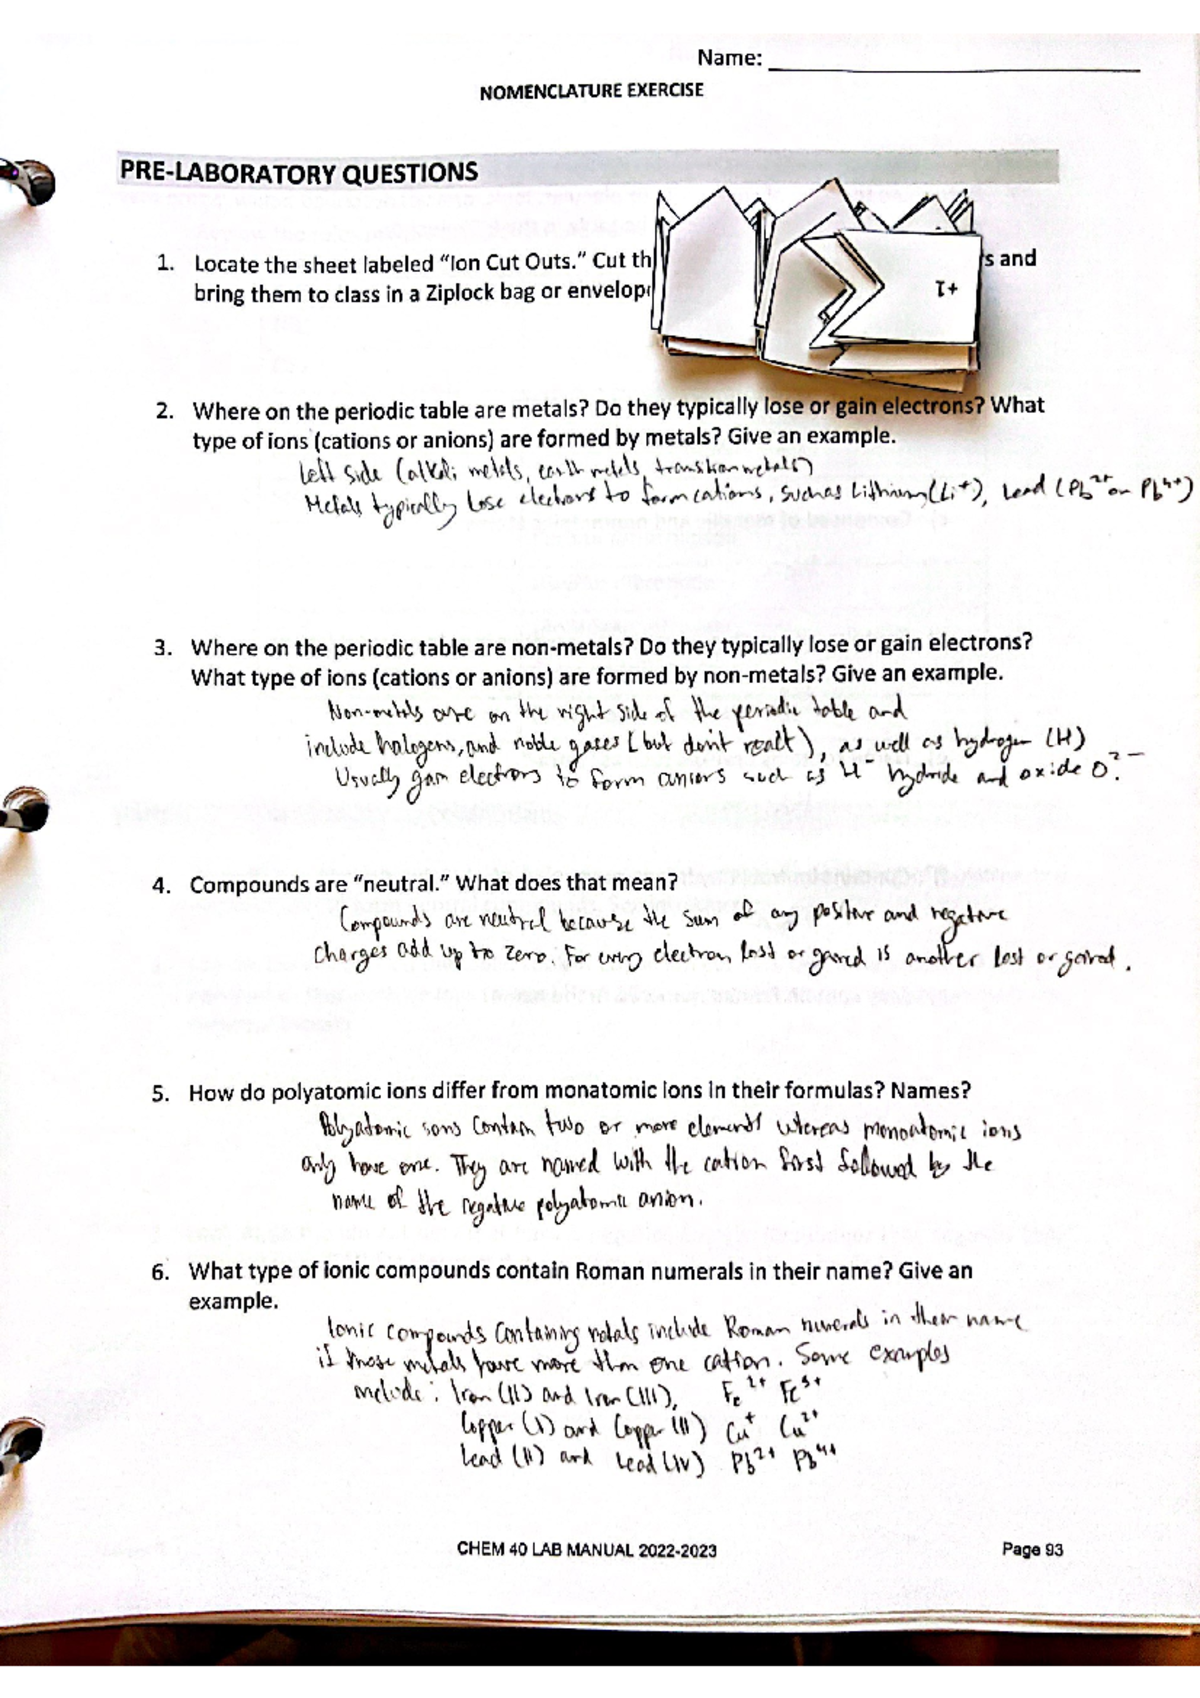 Name:
NOMENCLATURE EXERCISE
PRE-LABORATORY QUESTIONS
1. Locate the sheet labeled “Ion Cut Outs.” Cut th s and
bring them to class in a Ziplock bag or envelop
1+
2. Where on the periodic table are metals? Do they typically lose or gain electrons? What
type of ions (cations or anions) are formed by metals? Give an example.
Left side (alkali metals, earth metals, transition metals)
Metals typically lose electrons to form cations, such as Lithium (Li⁺), Lead (Pb²⁺ or Pb⁴⁺)
3. Where on the periodic table are non-metals? Do they typically lose or gain electrons?
What type of ions (cations or anions) are formed by non-metals? Give an example.
Non-metals are on the right side of the periodic table and
include halogens, and noble gases (but don't react), as well as hydrogen (H)
Usually gain electrons to form anions such as H⁻ hydride and oxide O²⁻.
4. Compounds are “neutral.” What does that mean?
Compounds are neutral because the sum of any positive and negative
charges add up to zero. For every electron lost or gained is another lost or gained.
5. How do polyatomic ions differ from monatomic ions in their formulas? Names?
Polyatomic ions contain two or more elements whereas monoatomic ions
only have one. They are named with the cation first followed by the
name of the negative polyatomic anion.
6. What type of ionic compounds contain Roman numerals in their name? Give an
example.
Ionic compounds containing metals include Roman numerals in their name
if those metals have more than one cation. Some examples
include: Iron (II) and Iron (III), Fe²⁺ Fe³⁺
Copper (I) and Copper (II) Cu⁺ Cu²⁺
Lead (II) and Lead (IV) Pb²⁺ Pb⁴⁺
CHEM 40 LAB MANUAL 2022-2023 Page 93